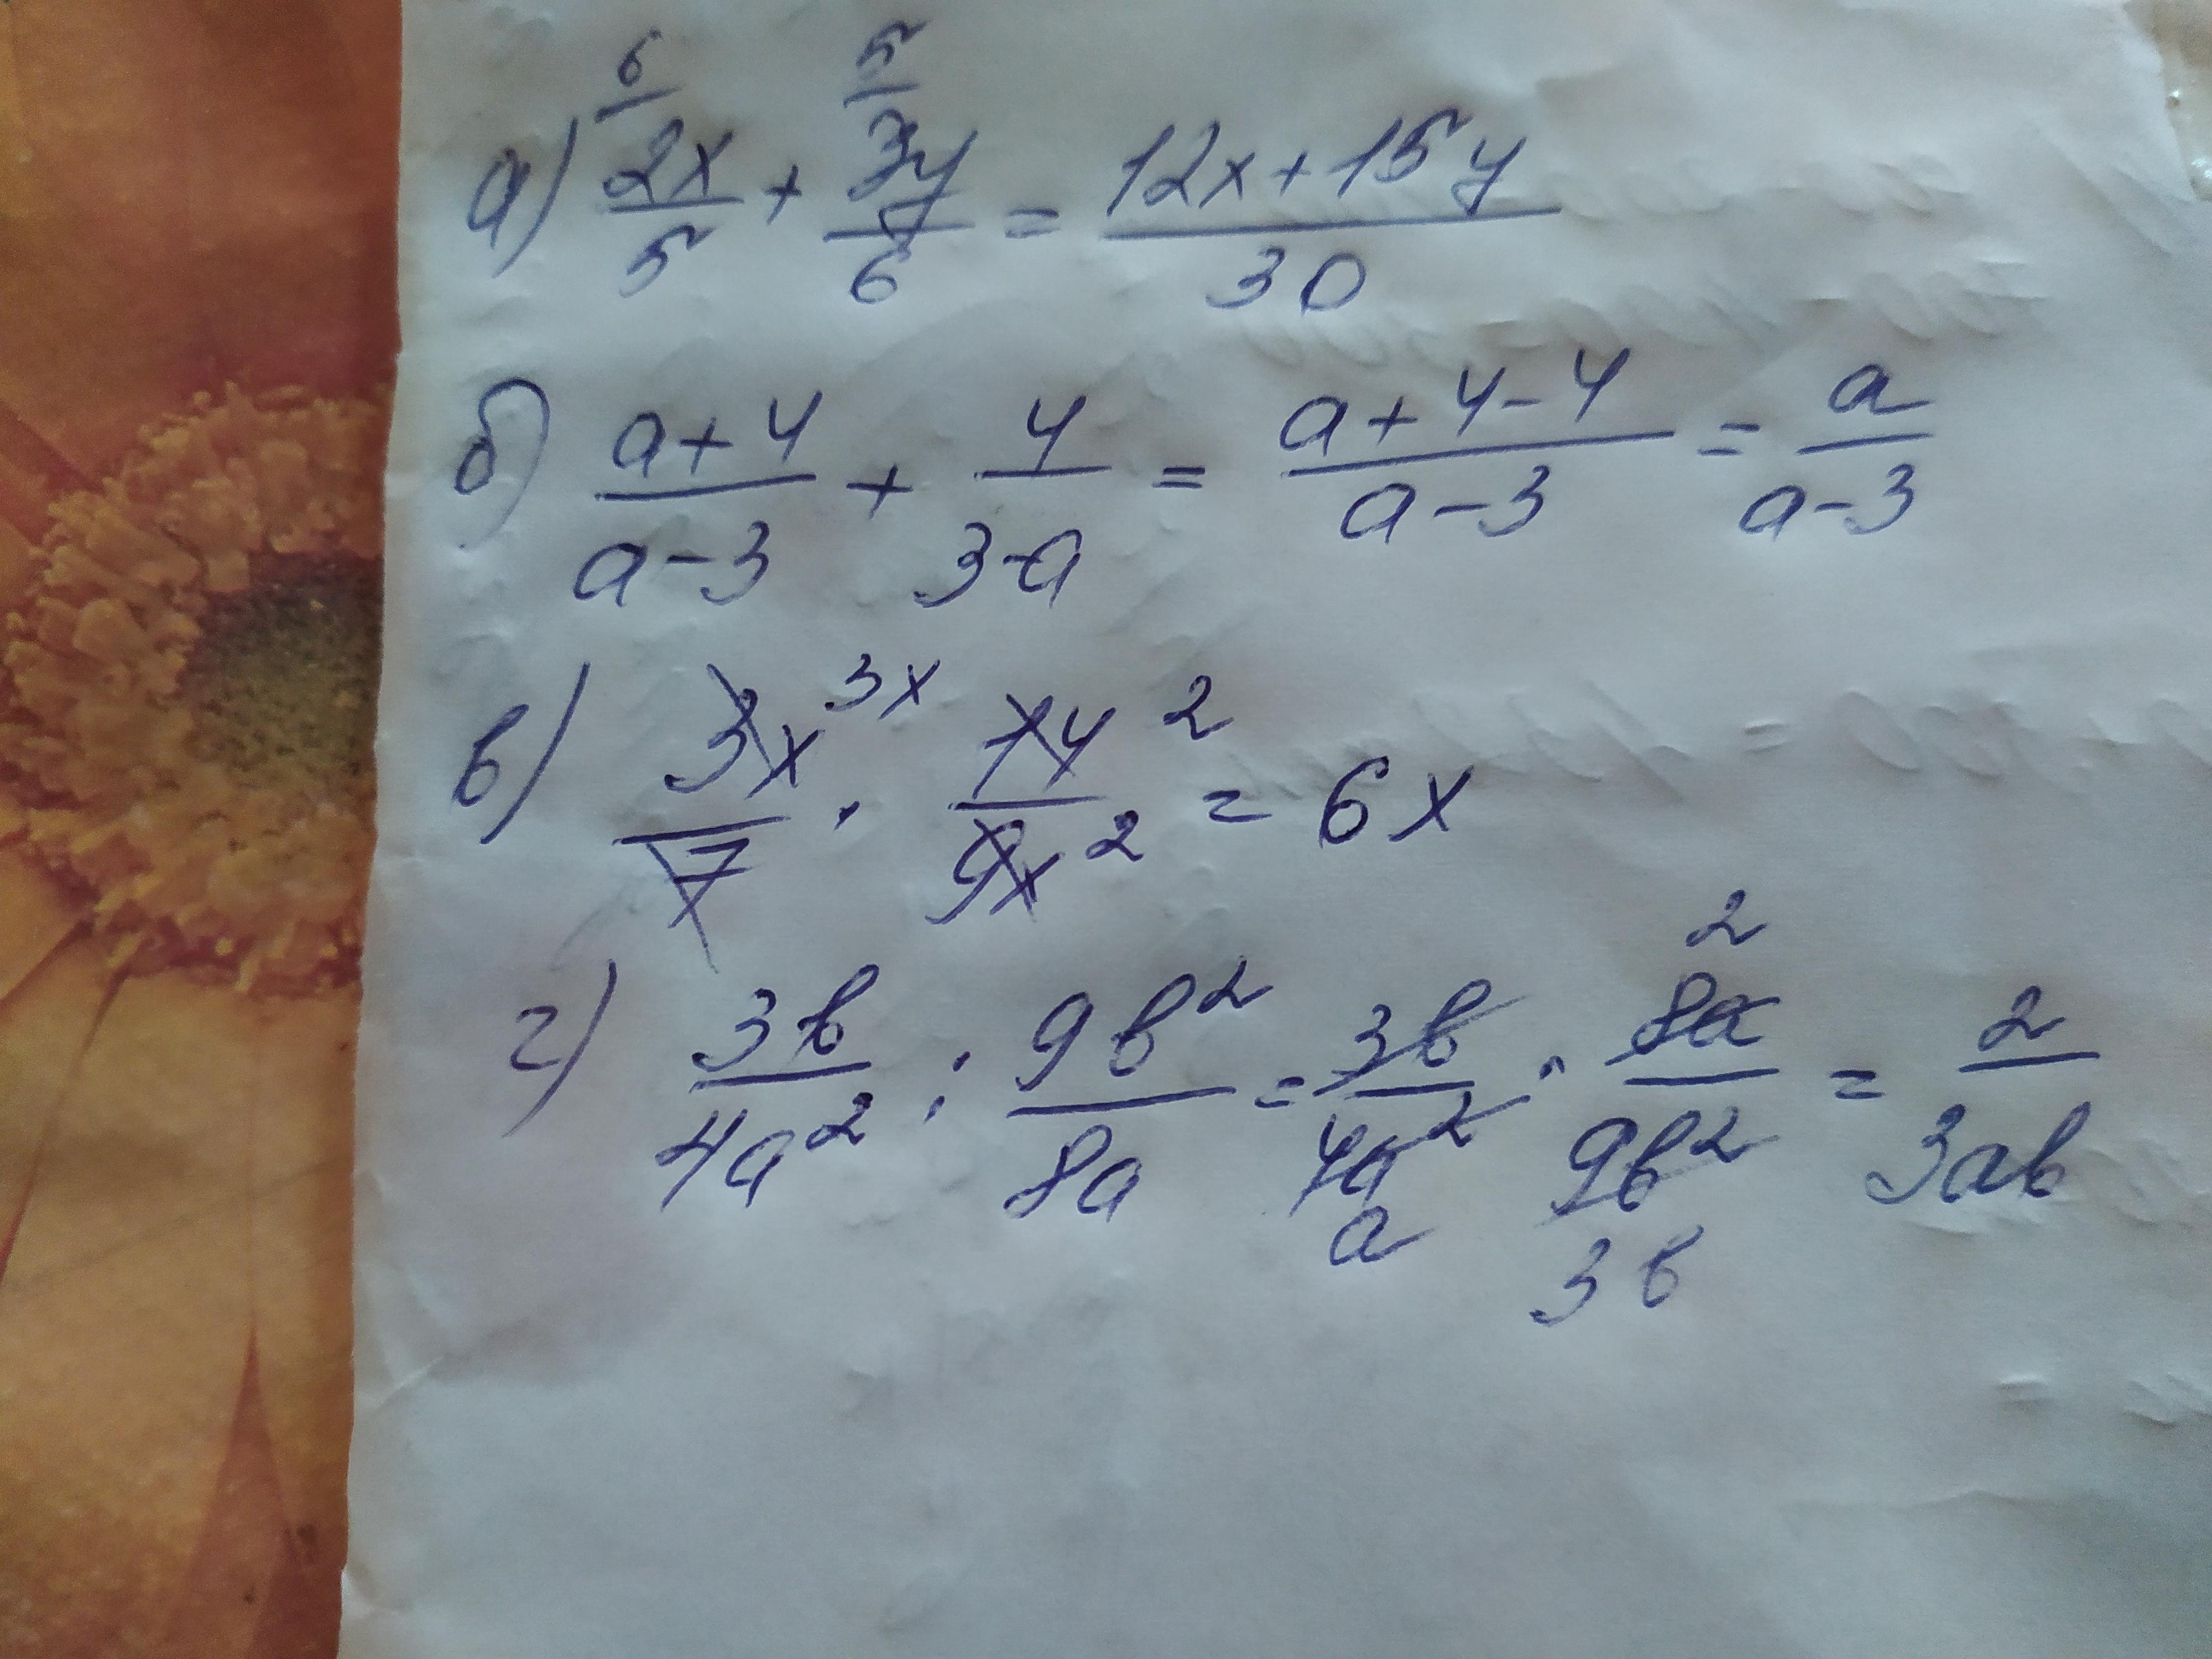 а) 6/ 2x/5 + 5/ 3y/6 = (12x+15y)/30
б) (a+4)/(a-3) + 4/(3-a) = (a+4-4)/(a-3) = a/(a-3)
в) 3x/7 3x · 14/9x² 2 = 6x
г) 3b/4a² : 9b²/8a = 3b/4a² a · 8a/9b² 2 3b = 2/3ab